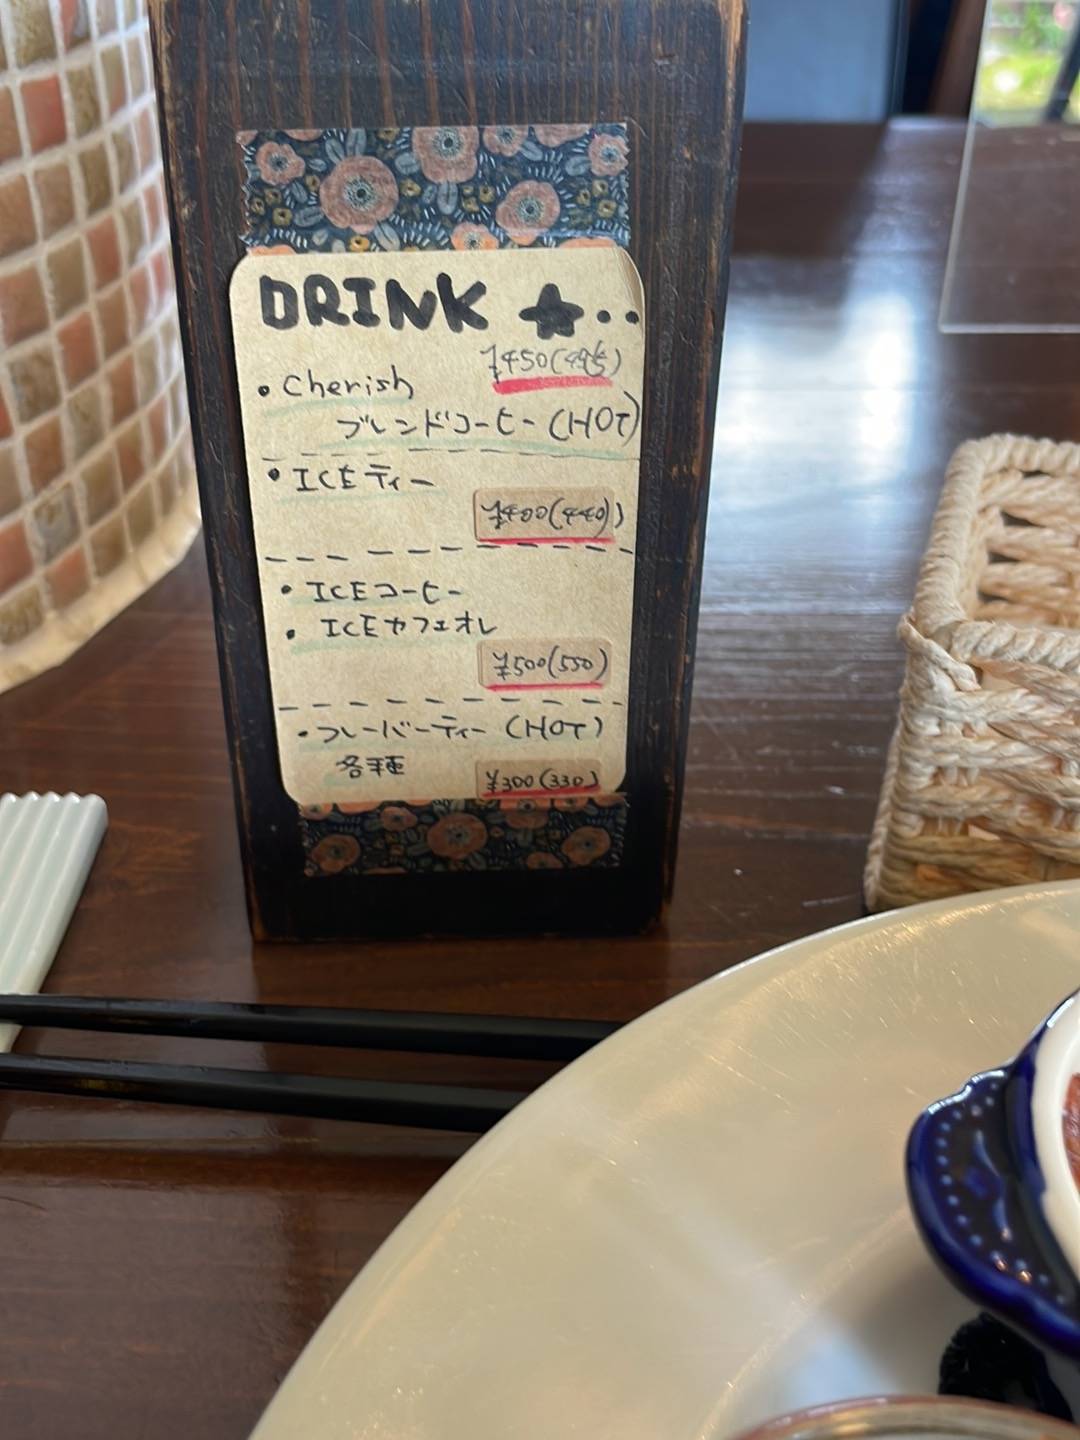 DRINK ★‥
¥450(495)
・Cherish
ブレンドコーヒー(HOT)
・ICEティー
¥400(440)
・ICEコーヒー
・ICEカフェオレ
¥500(550)
・フレーバーティー (HOT)
各種
¥300(330)